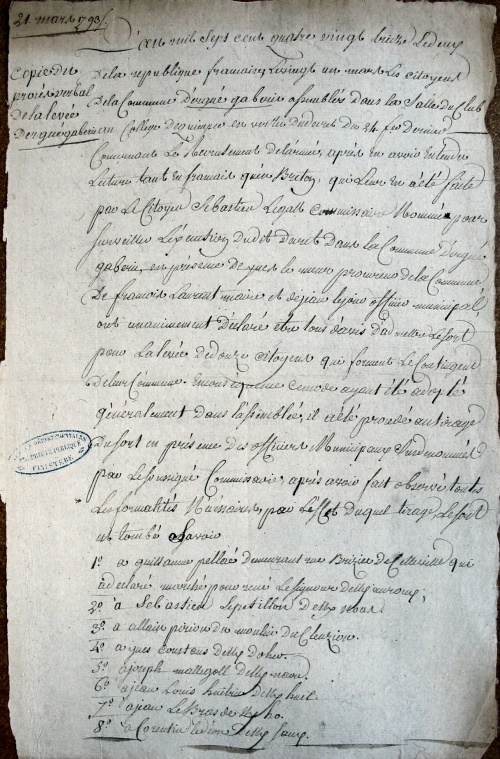 21. mars 1793
L'an mil sept cent quatre vingt treize Le deux
de la republique francaise, Le vingt un mars Les citoyens
Copie du
procès verbal
de la levée
d'ergué gaberic
de La Commune d'ergué gaberic assemblés dans la Salle du Club
au College de quimper en vertu du decret du 24. fer. dernier
Concernant Le Recrutement de l'armée, après en avoir entendu
Lecture tant en francais qu'en Breton, qui Leur en a été faite
par Le Citoyen Sebastien Legall Commissaire Nommé pour
surveiller L'éxecution du dit decret dans La Commune d'ergué
gaberic, en presence de yves le procureur de la Commune
De francois Laurent maire et dejean Lejour officier municipal
ont unanimement déclaré etre tous d'avis d'admettre Le sort
pour La levée de douze citoyens qui forment Le Contingent
de leur Commune ce mode ayant été adopté
généralement dans l'assemblée, il a été procédé au tirage
du sort en présence des officiers Municipaux susnommés
par Le soussigné Commissaire, après avoir fait observer toutes
Les formalités Necessaires, par L'effet duquel tirage, Le sort
est tombé Savoir
1° a guillaume demeurant qui
a declaré marché pour rené Le seigneur
2° à Sebastien Lepetillon
3° a allain du moulin du
4° a yves constans
5° a joseph
6° a jean Louis
7° a jean Le Bras
8° a Corentin
FINISTERE